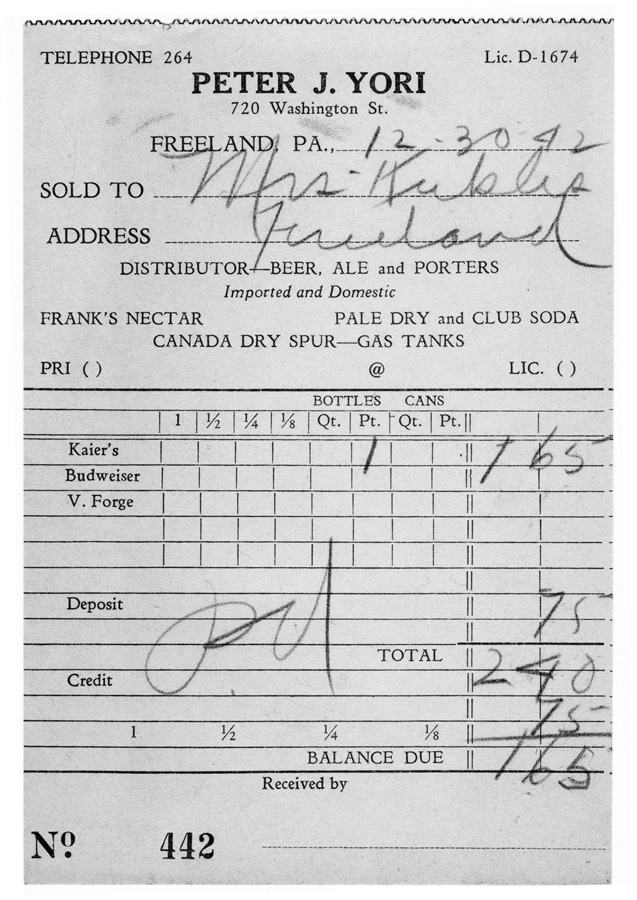 TELEPHONE 264 Lic. D-1674
PETER J. YORI
720 Washington St.
FREELAND, PA., 12-30-42
SOLD TO Mrs Kubles
ADDRESS Freeland
DISTRIBUTOR—BEER, ALE and PORTERS
Imported and Domestic
FRANK'S NECTAR PALE DRY and CLUB SODA
CANADA DRY SPUR—GAS TANKS
PRI ( ) @ LIC. ( )
BOTTLES CANS
1 ½ ¼ ⅛ Qt. Pt. Qt. Pt.
Kaier's 1 1 65
Budweiser
V. Forge
Deposit 75
TOTAL 2 40
Credit
75
1 ½ ¼ ⅛
BALANCE DUE 1 65
Received by
Nº 442